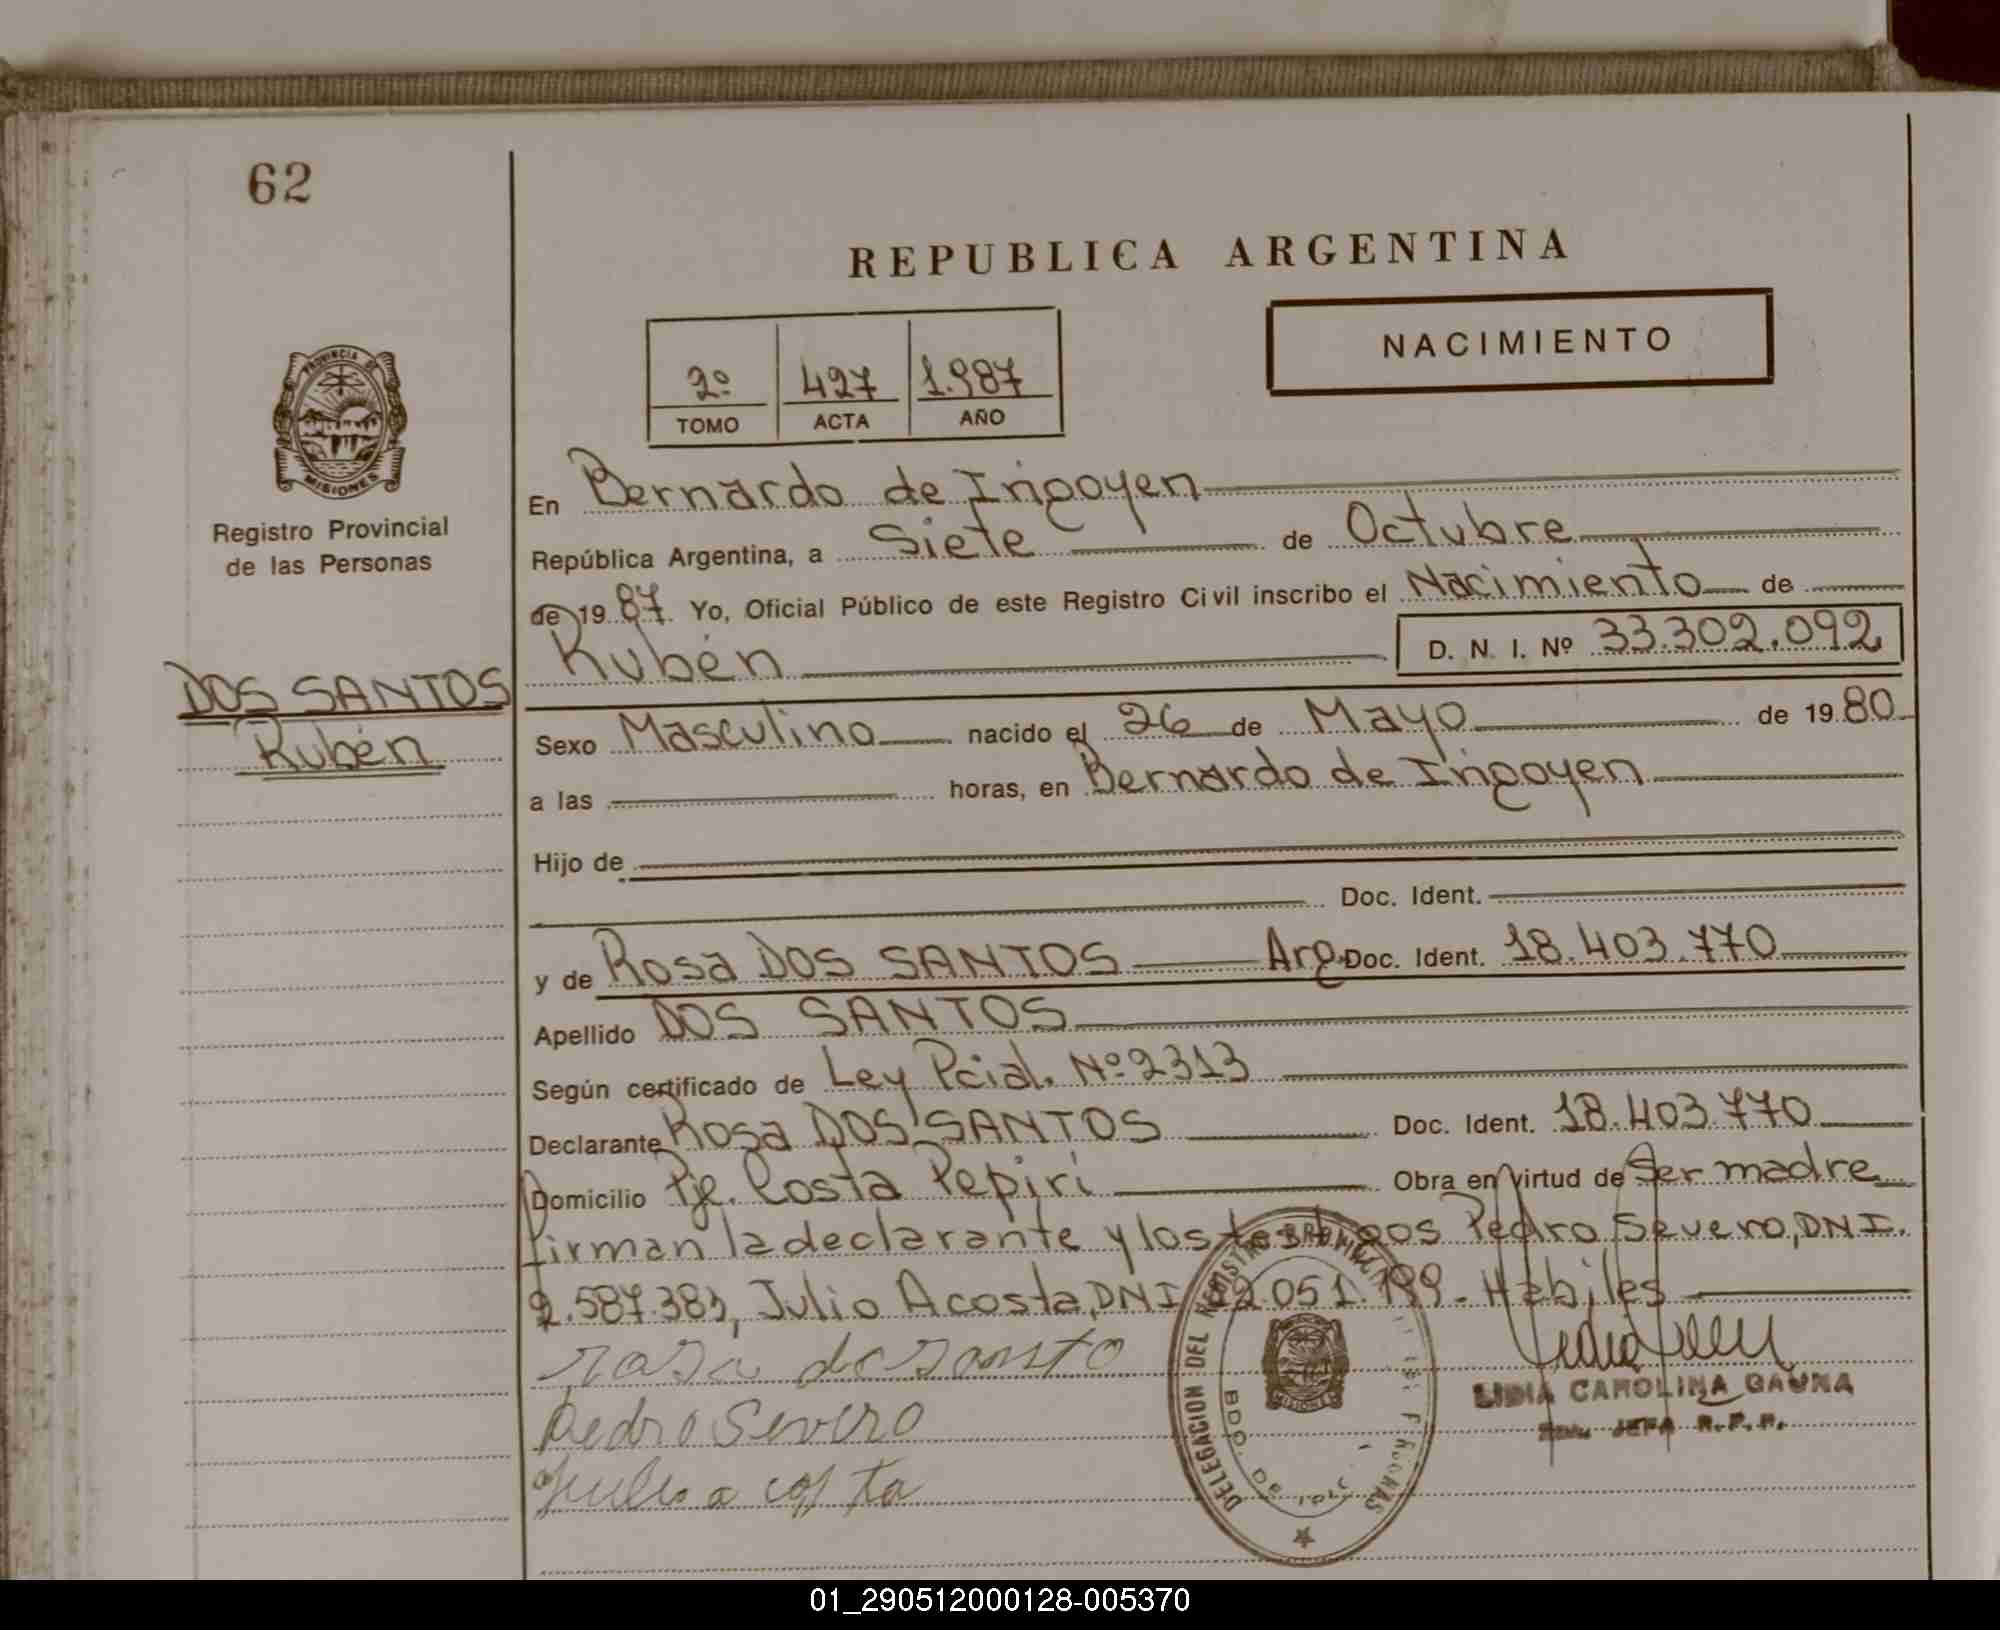 62
REPUBLICA ARGENTINA
NACIMIENTO
2º 427 1.987
TOMO ACTA AÑO
PROVINCIA DE
MISIONES
Registro Provincial
de las Personas
DOS SANTOS
Rubén
En Bernardo de Irigoyen
República Argentina, a Siete de Octubre
de 19 87. Yo, Oficial Público de este Registro Civil inscribo el Nacimiento de
Rubén D. N. I. Nº 33.302.092
Sexo Masculino nacido el 26 de Mayo de 19 80
a las horas, en Bernardo de Irigoyen
Hijo de
Doc. Ident.
y de Rosa DOS SANTOS Arg. Doc. Ident. 18.403.770
Apellido DOS SANTOS
Según certificado de Ley Pcial. Nº 2313
Declarante Rosa DOS SANTOS Doc. Ident. 18.403.770
Domicilio Pje. Costa Pepirí Obra en virtud de Ser madre
firman la declarante y los testigos Pedro Severo, DNI.
2.587.383, Julio Acosta, DNI 12.051.199.- Hábiles
rosa do santo
Pedro Severo
Julio a costa
DELEGACION DEL REGISTRO PROVINCIAL DE LAS PERSONAS
BDO. DE
MISIONES
LIDIA CAROLINA GAUNA
JEFA R.P.P.
01_290512000128-005370